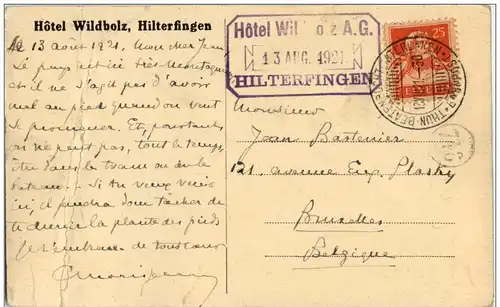 Hôtel Wildbolz, Hilterfingen
le 13 août 1921, Mon cher Jean
Le pays ici est très montagneux
et il ne s'agit pas d'avoir
mal au pied quand on veut
se promener. Et, pourtant
on ne peut pas, tout le temps,
être dans le tram ou sur le
bateau. - Si tu veux venir
ici, il faudra donc tâcher de
te durcir la plante des pieds
Je t'embrasse de tout cœur
Hôtel Wildbolz A.G.
13 AUG. 1921
HILTERFINGEN
25
HELVETIA
THUN-BEATENBERG
Monsieur
Jean Bastenier
121, avenue Eug. Plasky
Bruxelles
Belgique